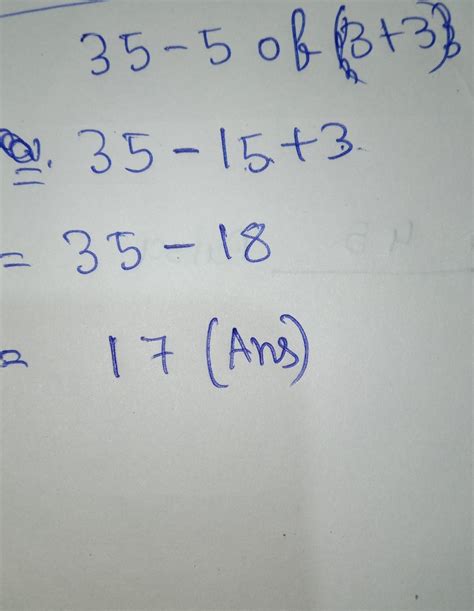 35-5 of (3+3)
35-15+3
= 35-18
= 17 (Ans)